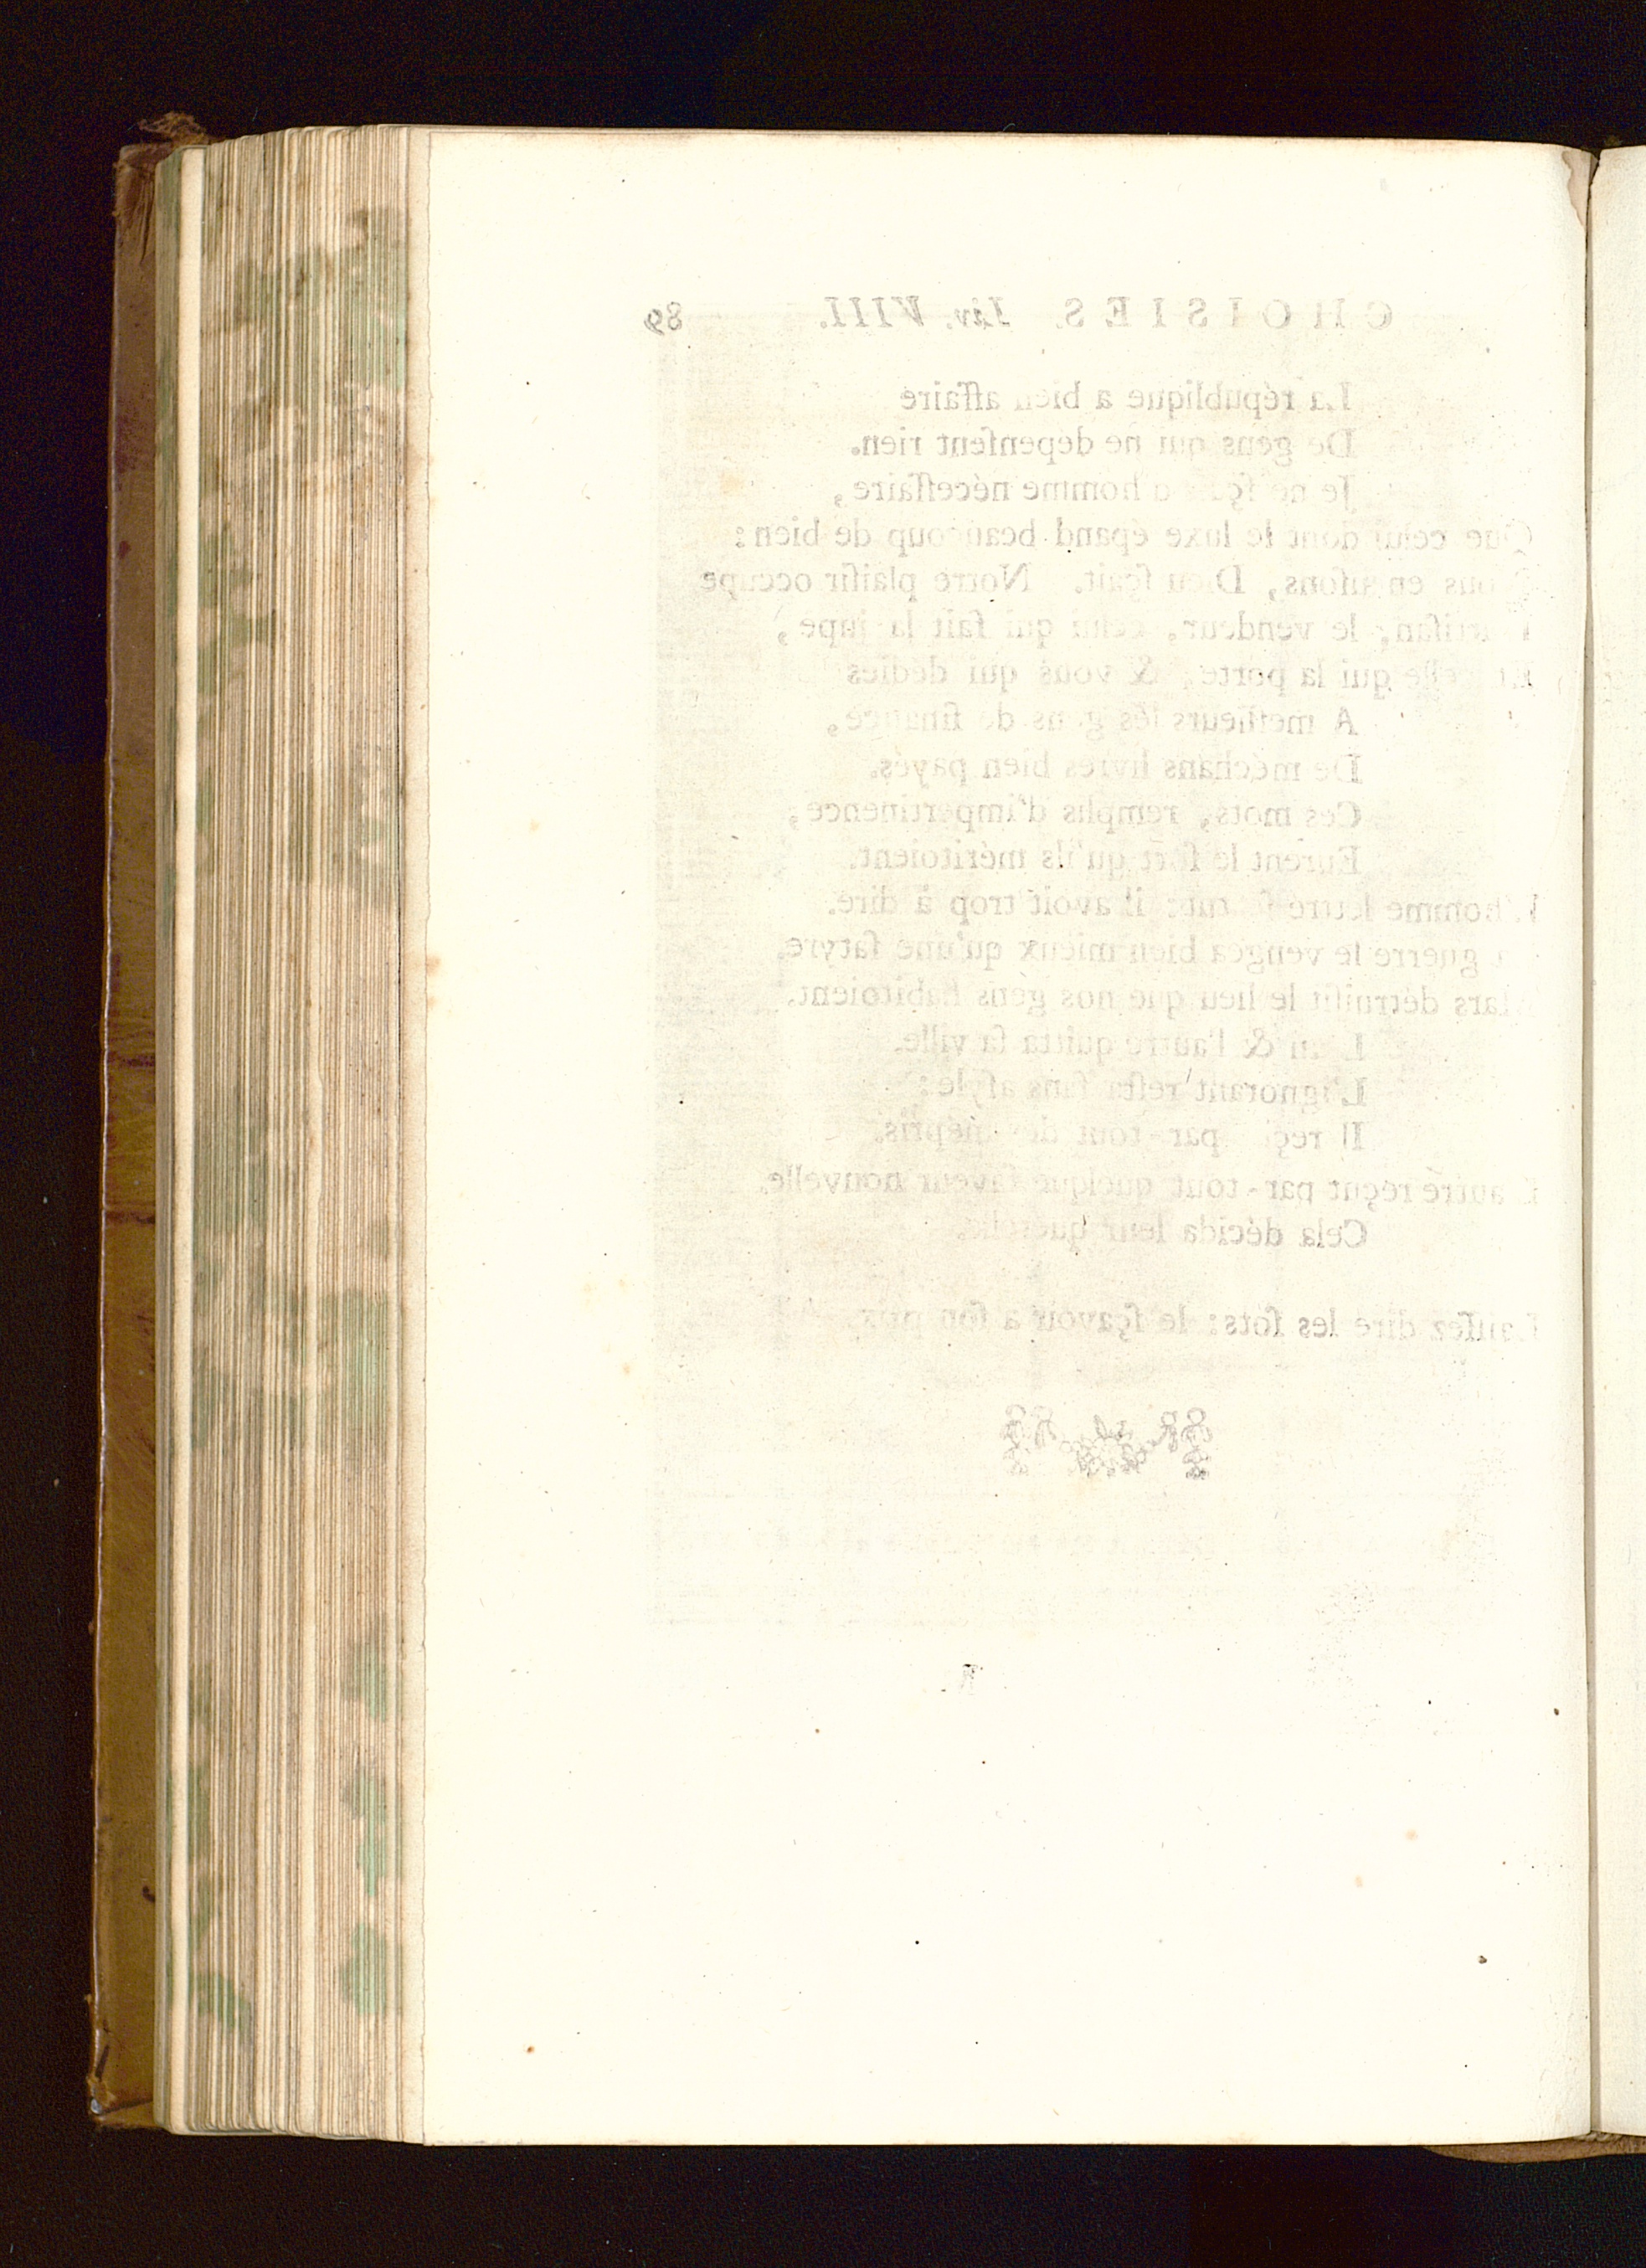 CHOISIES. Liv. VIII. 89
La république a bien affaire
De gens qui ne dépenſent rien.
Je ne d'homme néceſſaire,
Que celui dont le luxe épand beaucoup de bien:
en uſons, Dieu ſçait. Notre plaiſir occupe
le vendeur, celui qui fait la jupe,
Et celle qui la porte, & vous qui dédiez
A meſſieurs les gens de finance,
De méchans livres bien payés.
Ces mots, remplis d'impertinence,
Eurent le ſort qu'ils méritoient.
L'homme lettré il avoit trop à dire.
guerre le vengea bien mieux qu'une ſatyre.
Mars détruiſit le lieu que nos gens habitoient.
L'un & l'autre quitta ſa ville.
L'ignorant reſta ſans aſyle:
Il reçut par-tout des mépris.
L'autre reçut par-tout quelque faveur nouvelle.
Cela décida leur querelle.
Laiſſez dire les ſots: le ſçavoir a ſon prix.